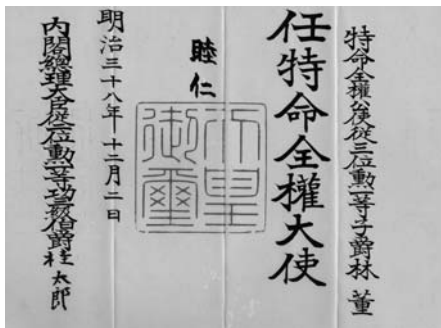 特命全權公使從三位勳一等子爵林董
任特命全權大使
睦仁
天皇御璽
明治三十八年十二月二日
內閣總理大臣從二位勳一等功三級伯爵桂太郎